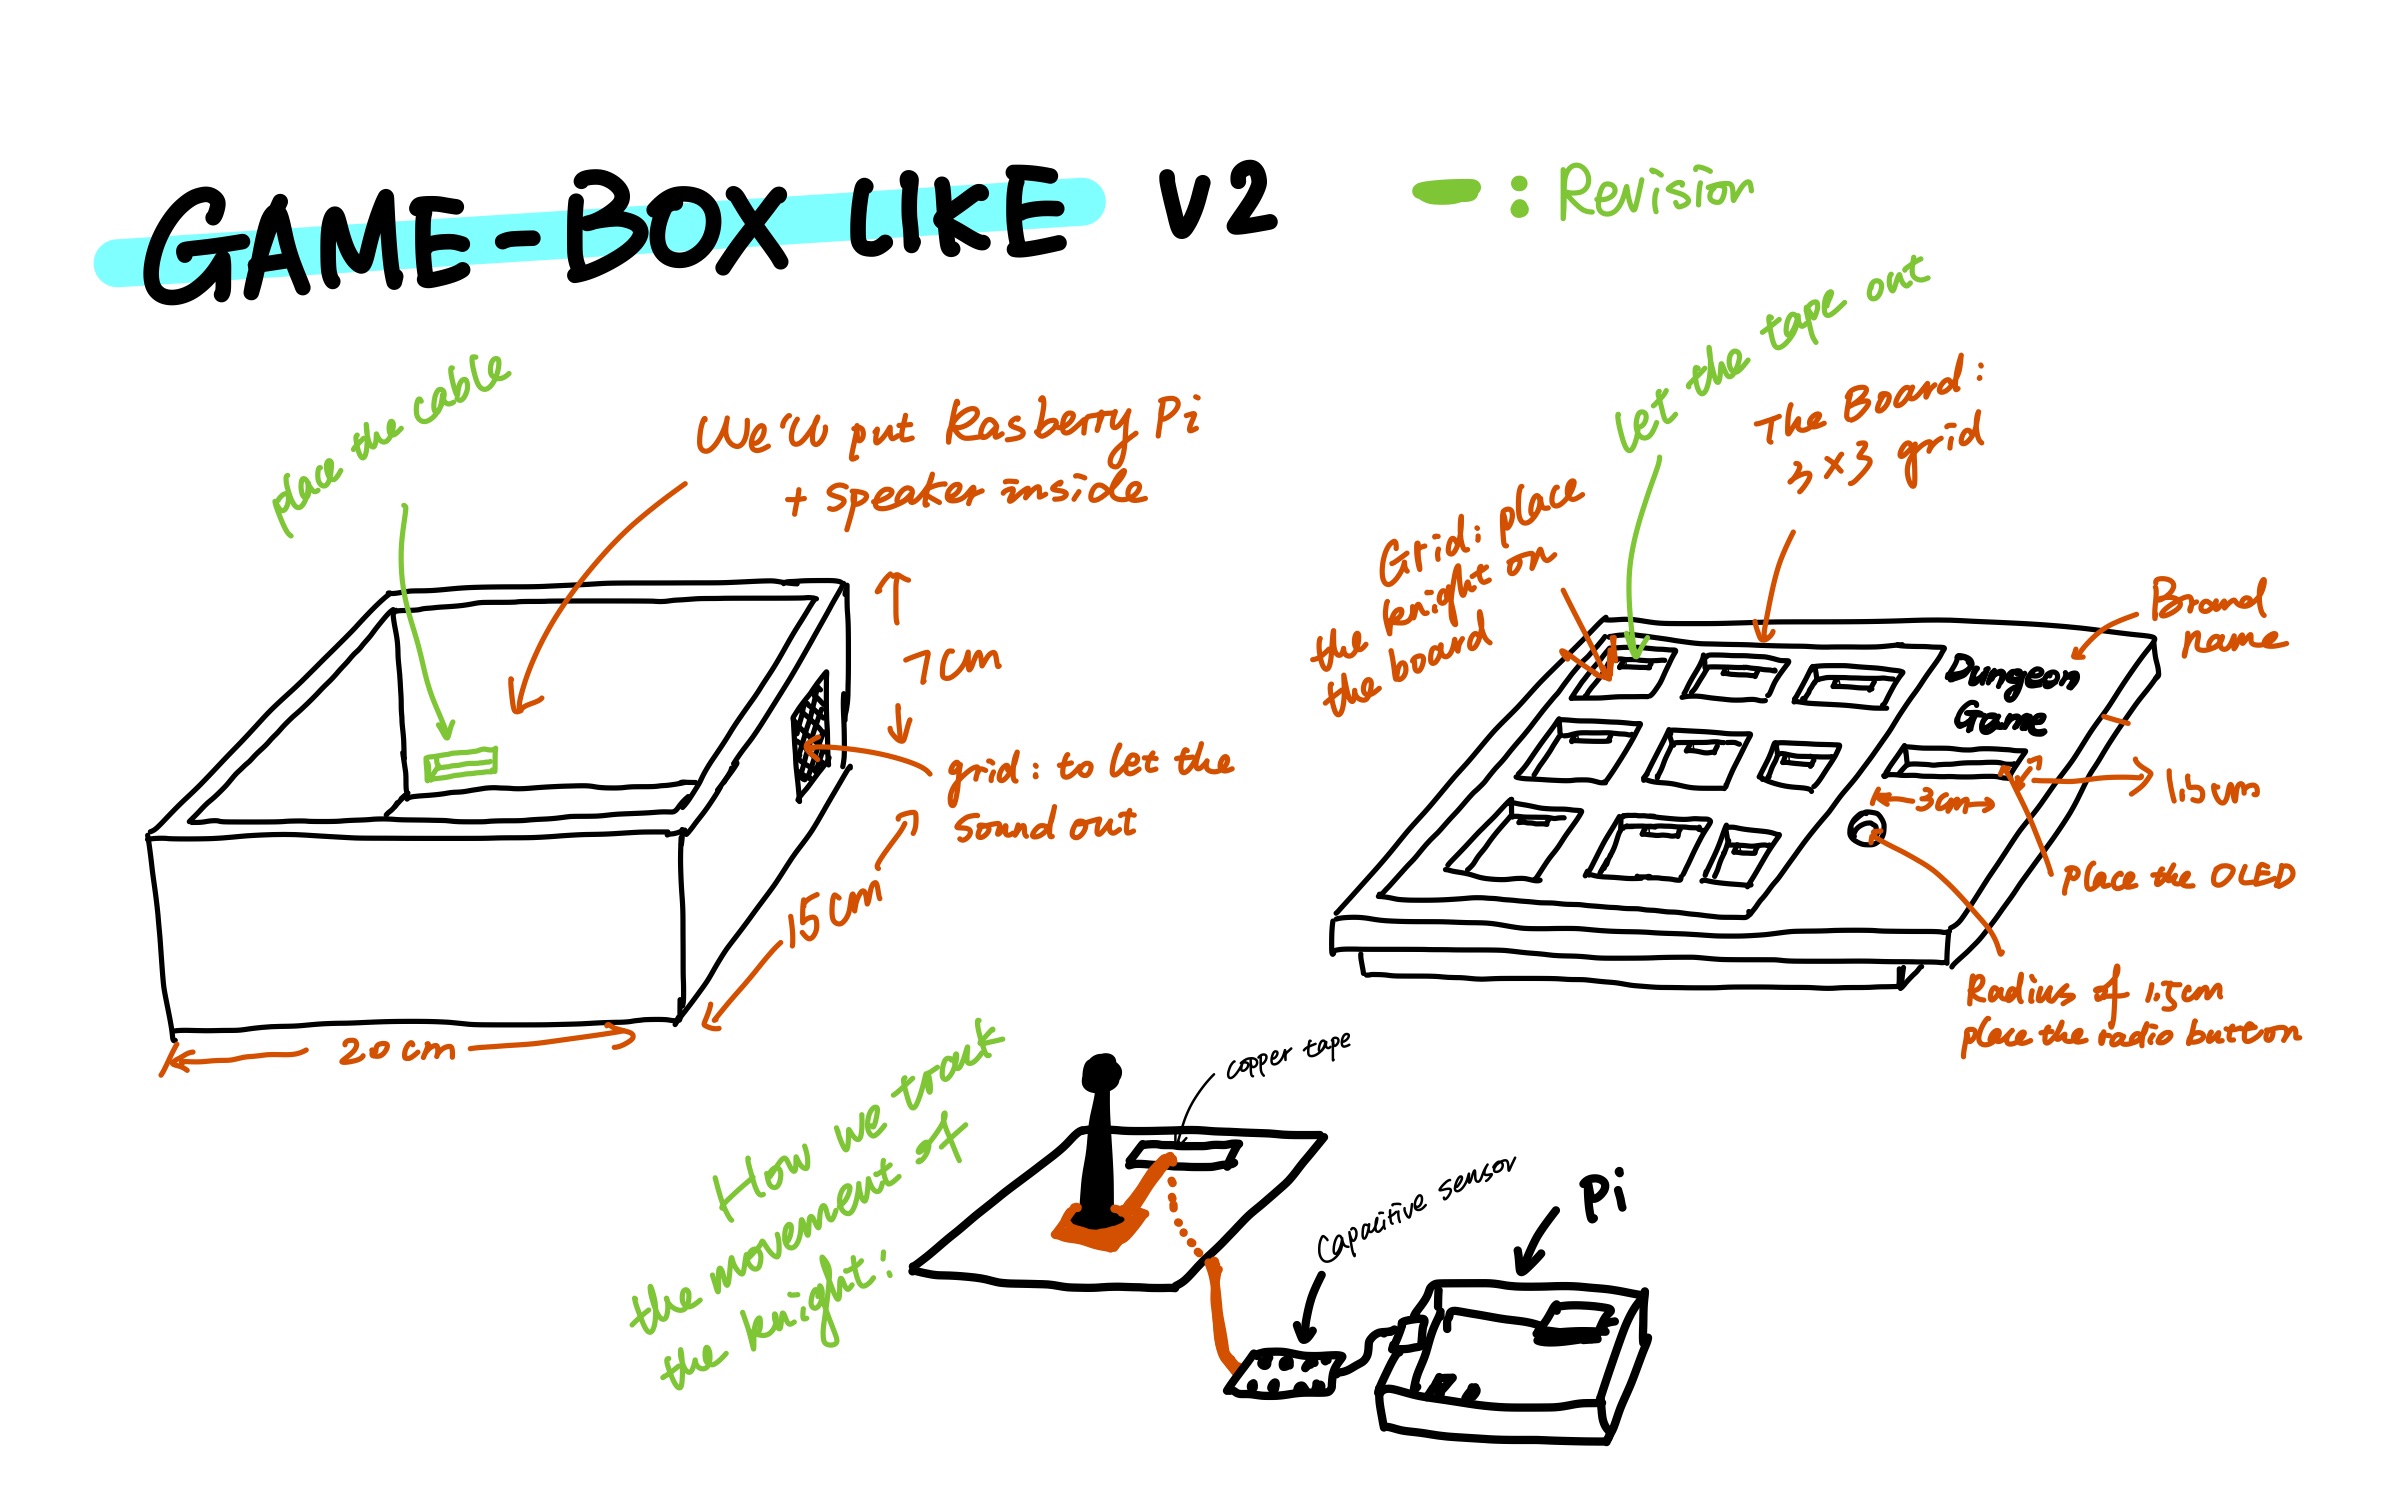 GAME-BOX LIKE V2
: Revision
place the cable
We'll put Rasberry Pi
+ speaker inside
7cm
grid: to let the
sound out
15cm
20cm
Let the tape out
The Board:
3x3 grid
Grid: place
the knight on
the board
Brand
name
Dungeon
Game
3cm
1.5cm
Place the OLED
Radius of 1.5cm
place the radio button
How we track
the movement of
the knight:
copper tape
Capacitive sensor
Pi